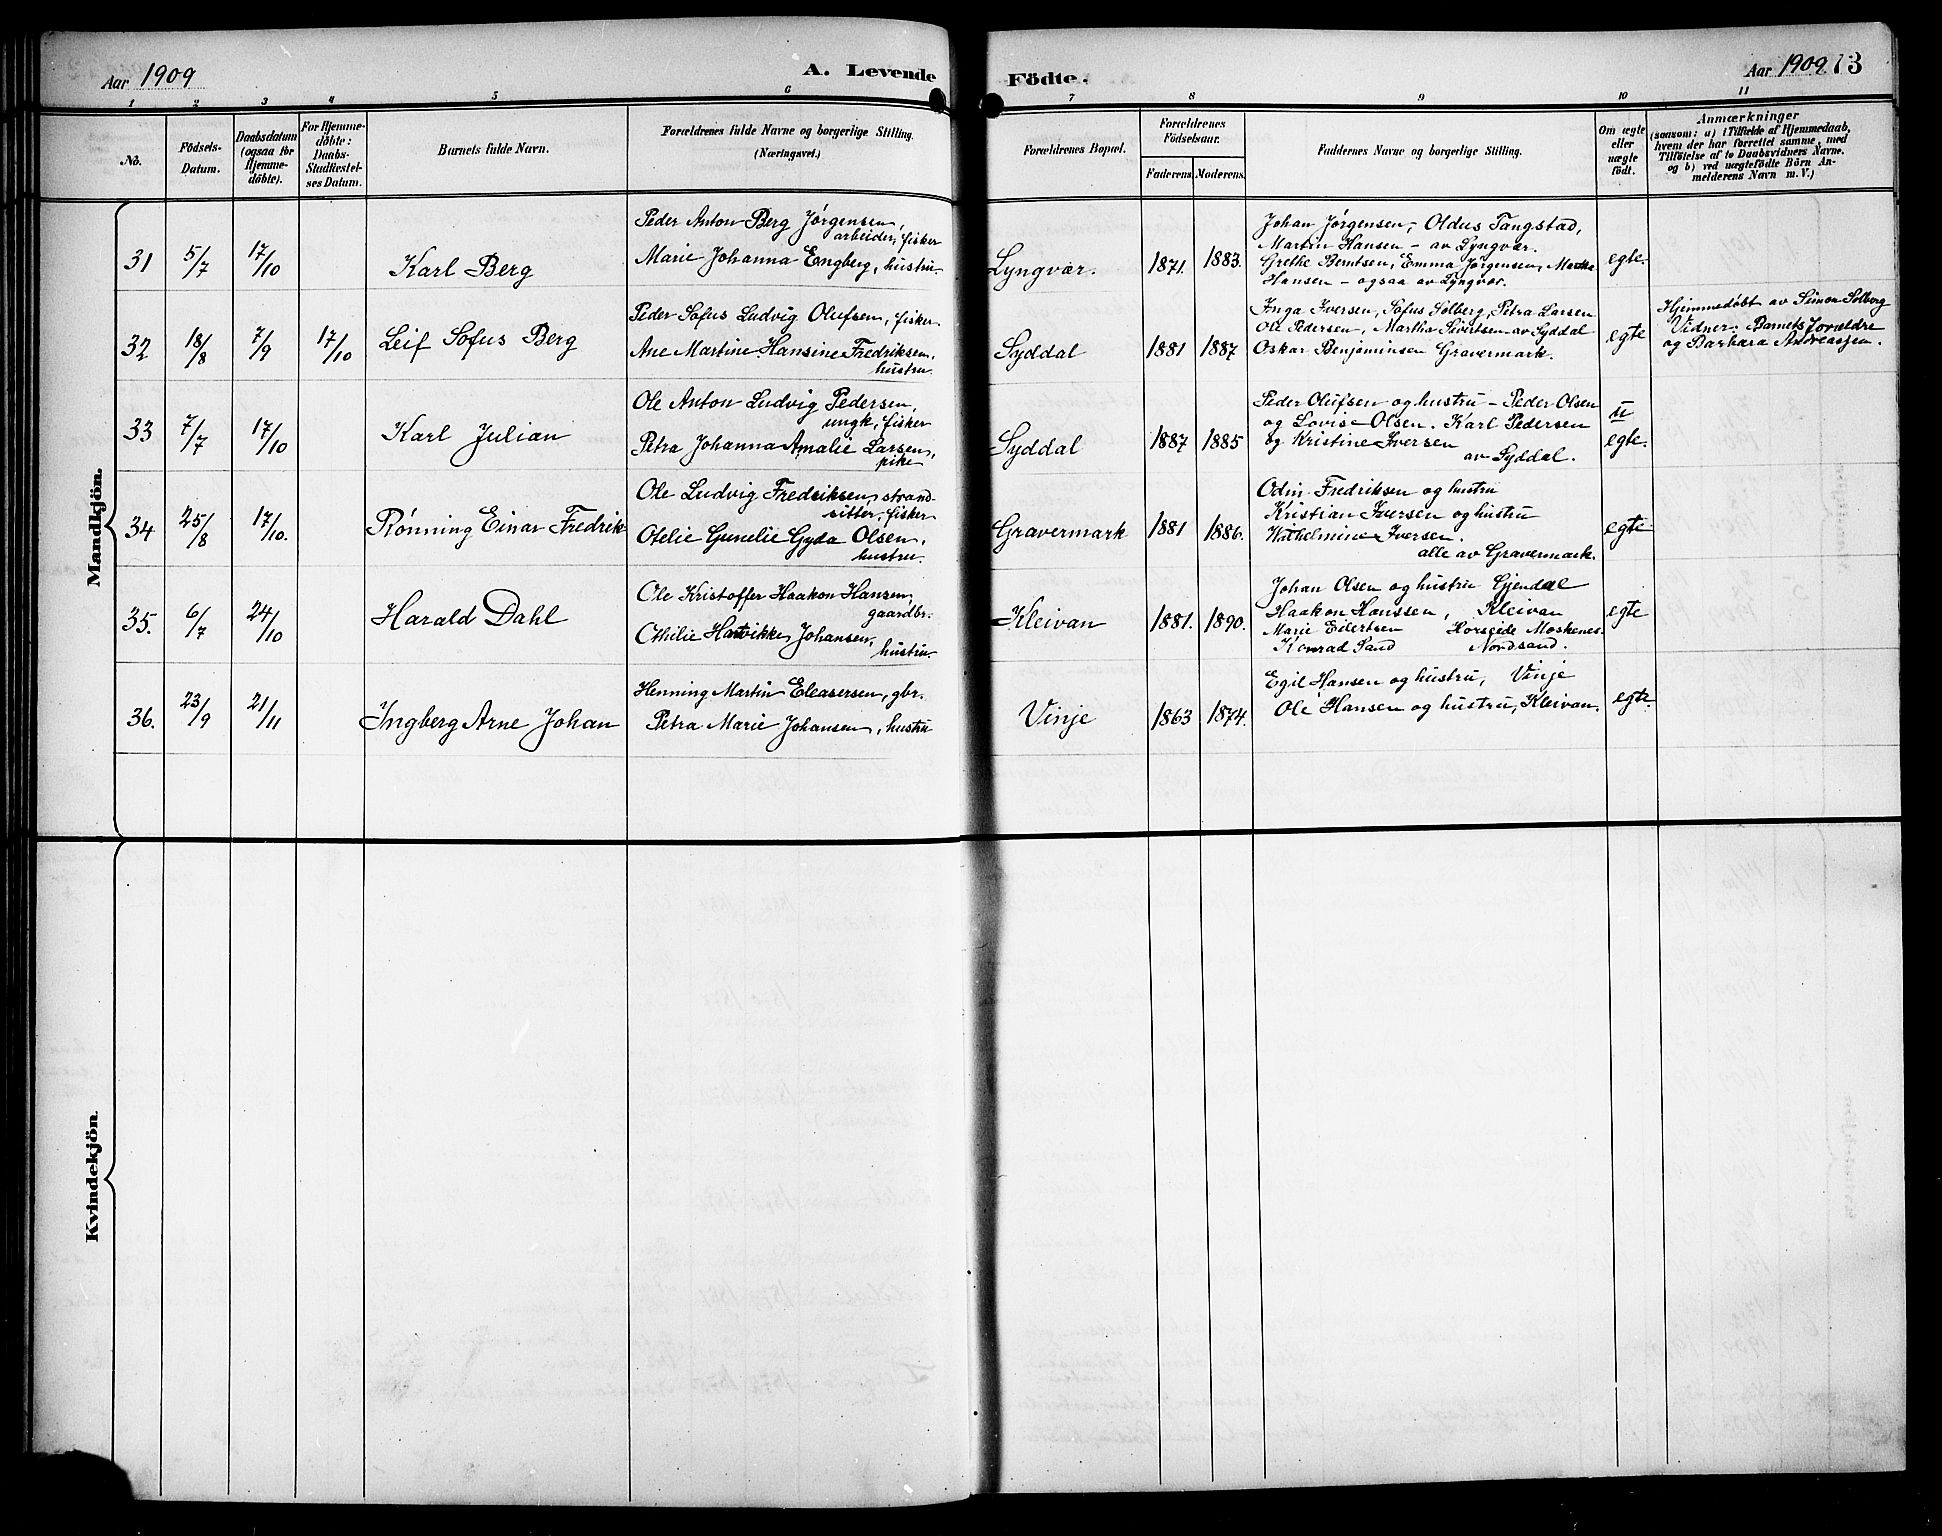 Aar 1909
A. Levende Födte.
Aar 1909
73
1 2 3 4 5 6 7 8 9 10 11
No.
Födsels-
Datum.
Daabsdatum
(ogsaa for
Hjemme-
döbte).
For Hjemme-
döbte:
Daabs-
Stadfæstel-
ses Datum.
Barnets fulde Navn.
Forældrenes fulde Navne og borgerlige Stilling.
(Næringsvei.)
Forældrenes Bopæl.
Forældrenes
Födselsaar.
Faderens Moderens.
Faddernes Navne og borgerlige Stilling.
Om ægte
eller
uægte
födt.
Anmærkninger
(saasom: a) i Tilfælde af Hjemmedaab,
hvem der har forrettet samme, med
Tilföielse af to Daabsvidners Navne.
og b) ved uægtefödte Börn An-
melderens Navn m. V.)
Mandkjön.
31
5/7
17/10
Karl Berg
Peder Anton Berg Jørgensen,
arbeider, fisker
Marie Johanna Engberg, hustru
Lyngvær.
1871.
1883.
Johan Jørgensen, Oldus Tangstad,
Martin Hansen – av Lyngvær.
Grethe Berntsen, Emma Jørgensen, Martha
Hansen – ogsaa av Lyngvær.
egte.
32
18/8
7/9
17/10
Leif Sofus Berg
Peder Sofus Ludvig Olufsen, fisker
Ane Martine Hansine Fredriksen,
hustru.
Syddal
1881
1887
Inga Iversen, Sofus Solberg, Petra Larsen
Ole Pedersen, Martha Sivertsen av Syddal
Oskar Benjaminsen Gravermark.
egte
Hjemmedøbt av Simon Solberg
Vidner: Barnets forældre
og Barbara Andreassen.
33
7/7
17/10
Karl Julian
Ole Anton Ludvig Pedersen,
ungk., fisker
Petra Johanna Amalie Larsen,
pike
Syddal
1887
1885
Peder Olufsen og hustru – Peder Olsen
og Lovise Olsen. Karl Pedersen
og Kristine Iversen
av Syddal.
u
egte.
34
25/8
17/10.
Rønning Einar Fredrik
Ole Ludvig Fredriksen, strand-
sitter, fisker
Otelie Gunelie Gyda Olsen,
hustru.
Gravermark
1881
1886.
Odin Fredriksen og hustru
Kristian Iversen og hustru
Wilhelmine Iversen.
alle av Gravermark.
egte
35.
6/7
24/10
Harald Dahl
Ole Kristoffer Haakon Hansen,
gaardbr.
Othilie Hartvikke Johansen,
hustru.
Kleivan
1881.
1890.
Johan Olsen og hustru Gjendal
Haakon Hanssen, Kleivan
Marie Eilertsen Horseide Moskenes.
Konrad Sand Nordsand.
egte
36.
23/9
21/11
Ingberg Arne Johan
Henning Martin Eleasersen, gbr.
Petra Marie Johansen, hustru
Vinje
1863
1874.
Egil Hansen og hustru, Vinje
Ole Hansen og hustru, Kleivan.
egte
Kvindekjön.